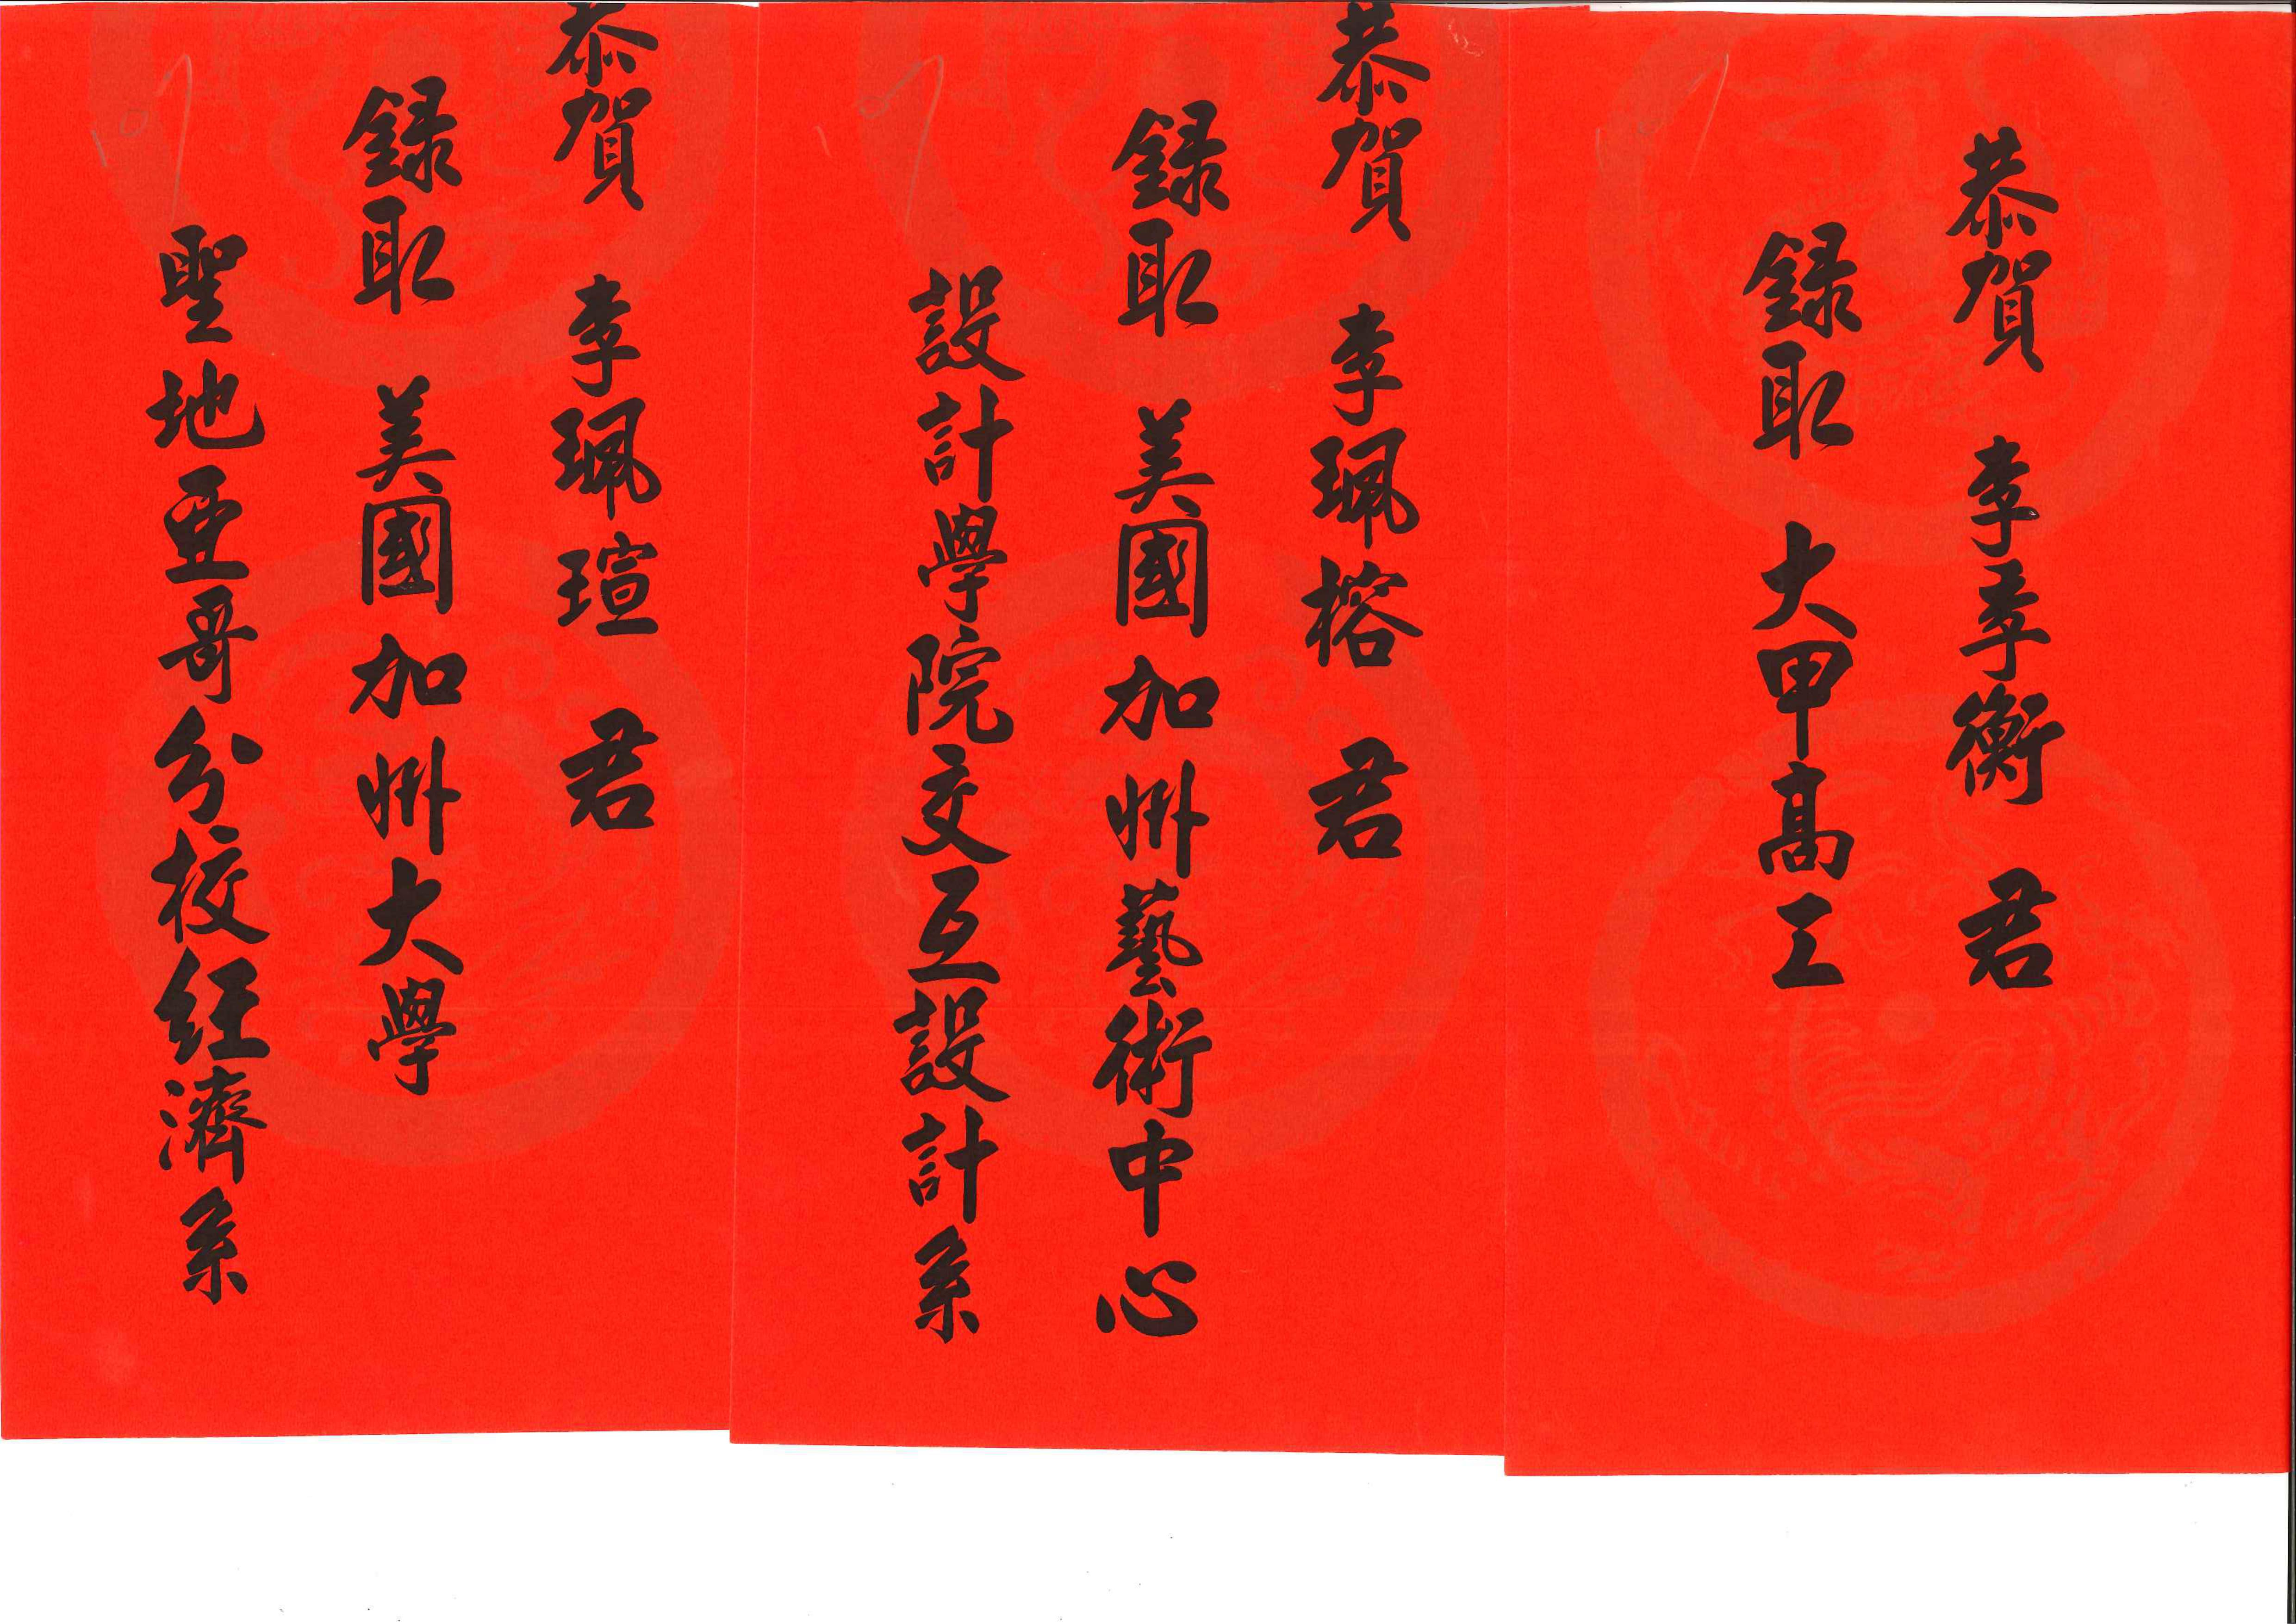 恭賀 李季衡 君
錄取 大甲高工
恭賀 李珮榕 君
錄取 美國加州藝術中心
設計學院交互設計系
恭賀 李珮瑄 君
錄取 美國加州大學
聖地亞哥分校經濟系